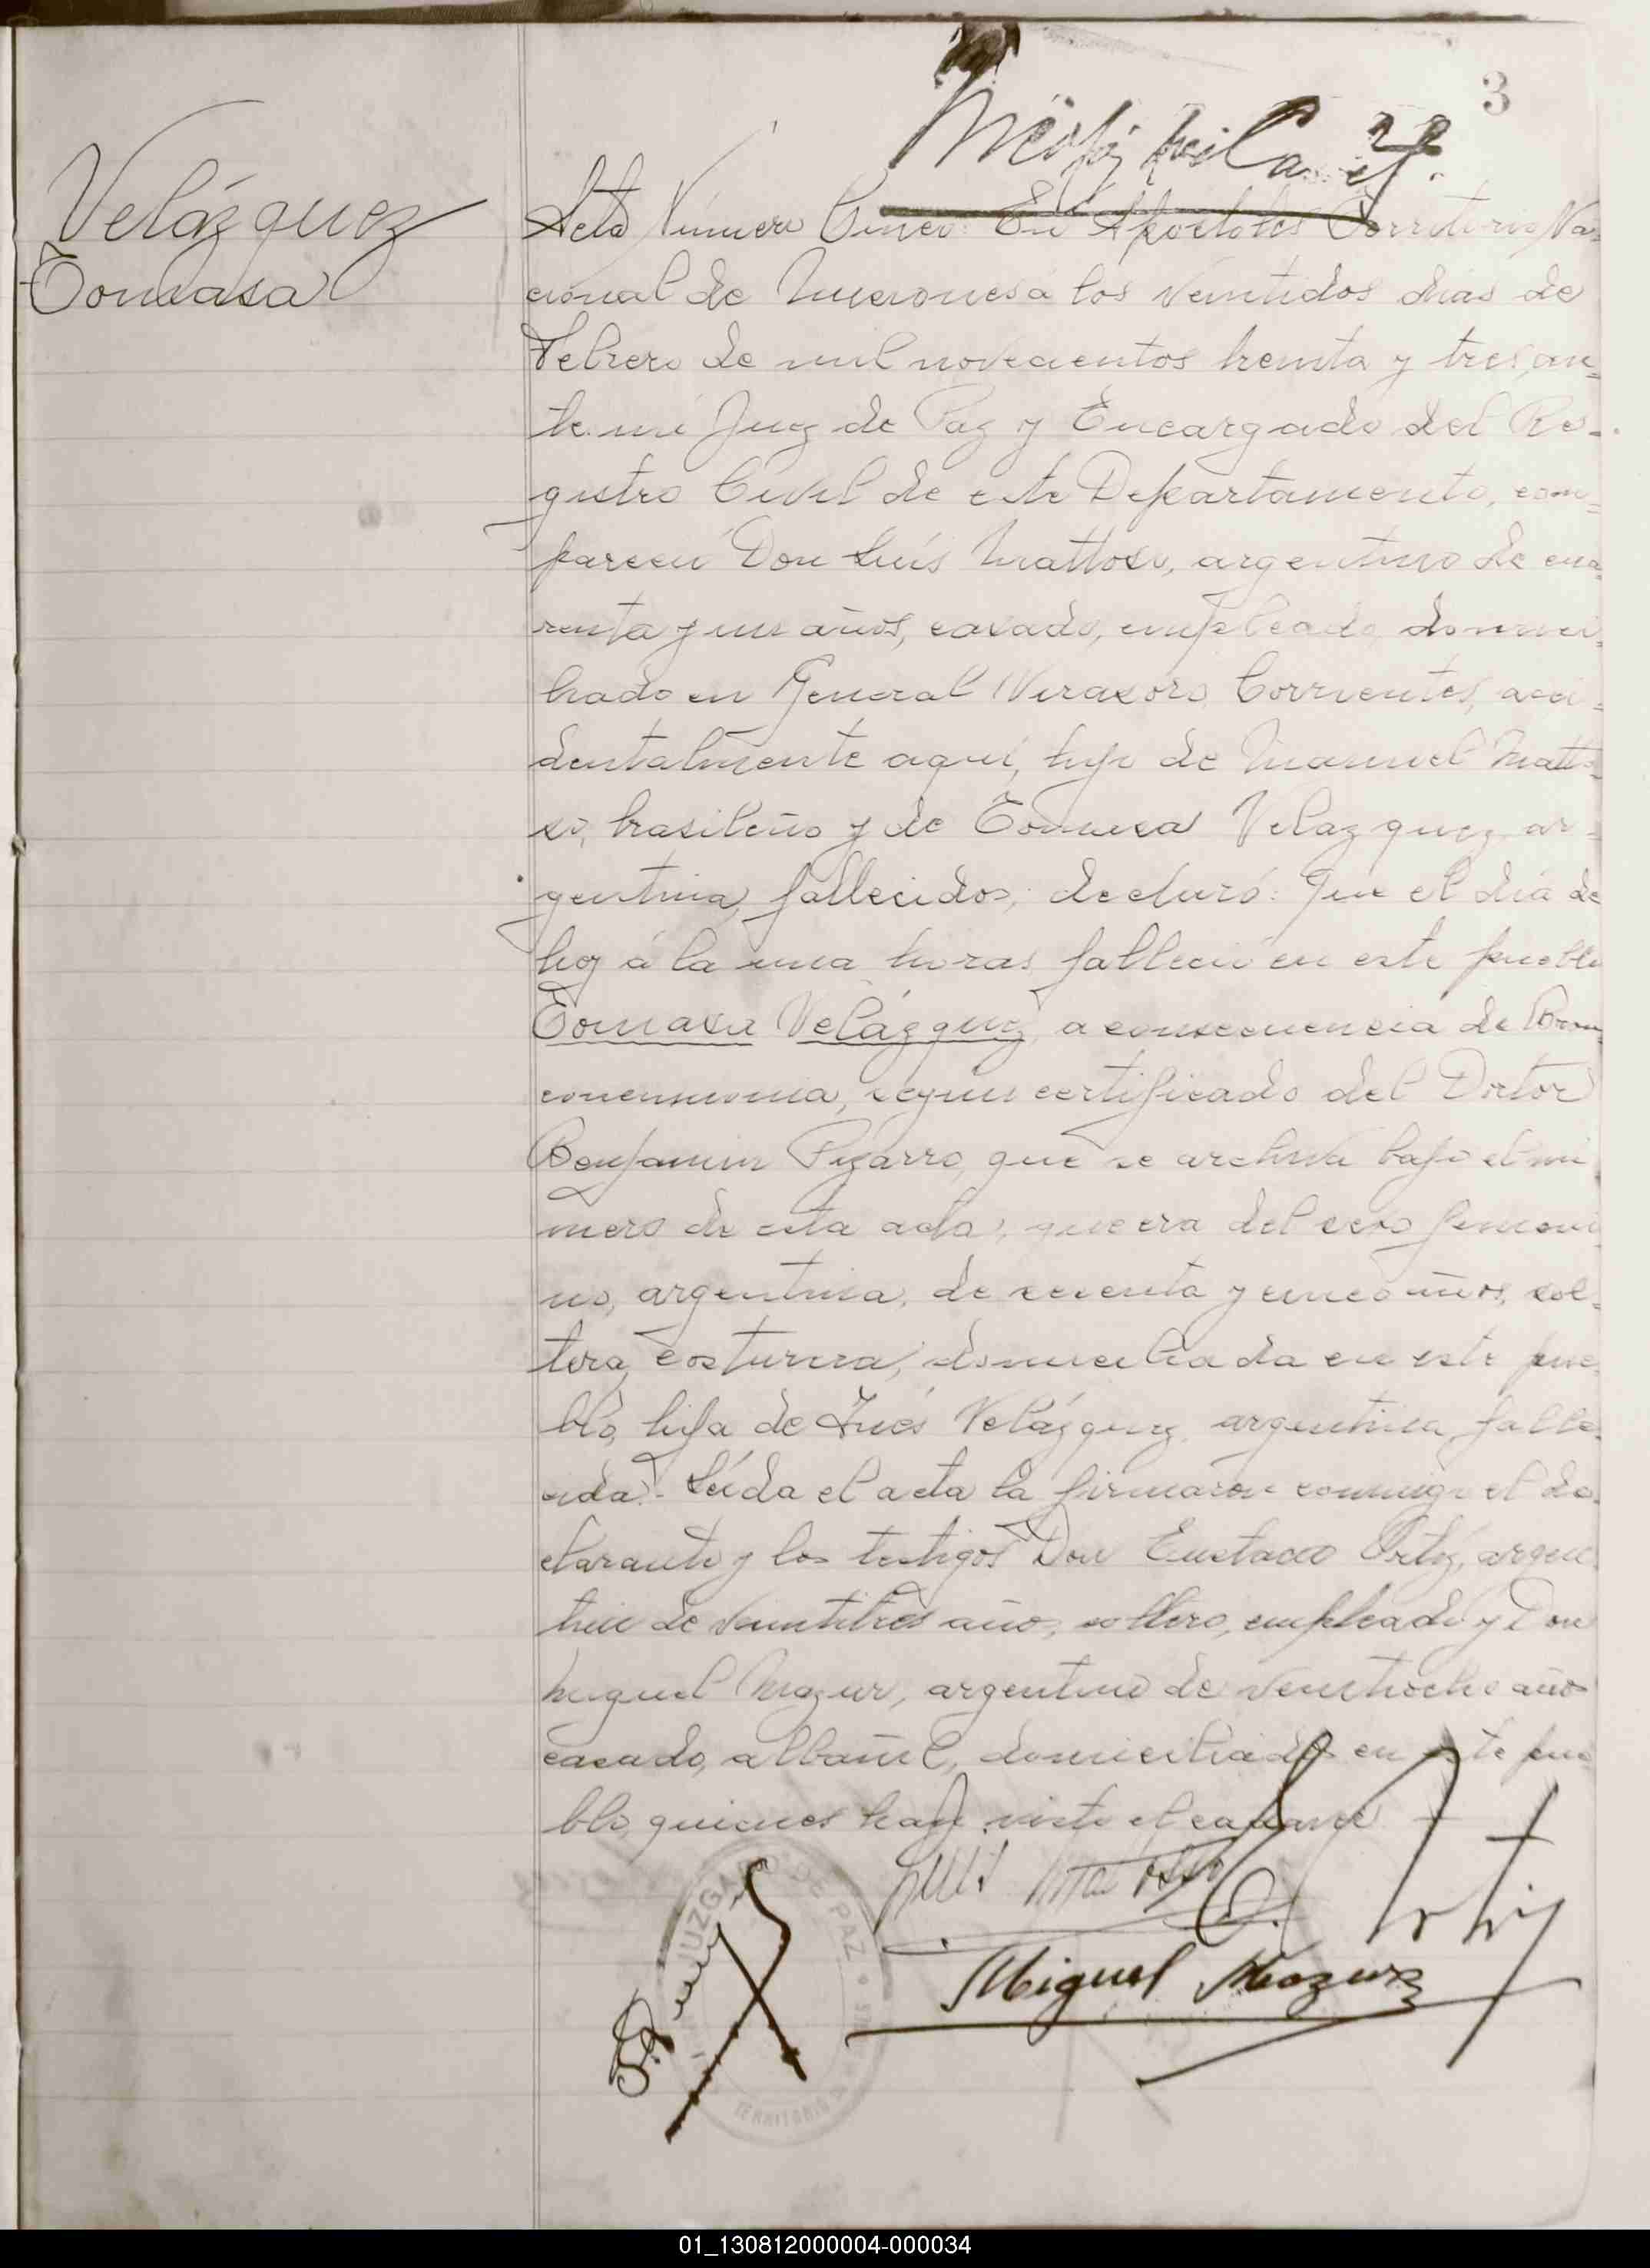 3
Velázquez
Tomasa
Acta Número Cinco: En Apóstoles Territorio Na=
cional de Misiones á los veintidos dias de
Febrero de mil novecientos treinta y tres, an=
te mi Juez de Paz y Encargado del Re-
gistro Civil de este Departamento, com=
pareció Don Luís Mattoso, argentino de cua=
renta y un años, casado, empleado, domici-
liado en General Virasoro Corrientes, acci-
dentalmente aquí, hijo de Manuel Matto=
so, brasileño y de Tomasa Velazquez, ar=
gentina, fallecidos; declaró: Que el dia de
hoy á la una horas falleció en este pueblo
Tomasa Velázquez, a consecuencia de Bron
coneumonia, segun certificado del Doctor
Benjamin Pizarro, que se archiva bajo el nú
mero de esta acta; que era del sexo femeni
no, argentina, de sesenta y cinco años, sol=
tera, costurera, domiciliada en este pue
blo, hija de Inés Velázquez, argentina, falle-
cida.- Leída el acta la firmaron conmigo el de-
clarante y los testigos Don Eustacio Ortiz, argen
tino de veintitres año, soltero, empleado y Don
Miguel Mazur, argentino de veintiocho años
casado, albañil, domiciliados en este pue
blo, quienes han visto el cadaver
Luis Mattoso
Ortiz
Miguel Mazur
JUZGADO DE PAZ
TERRITORIO
01_130812000004-000034